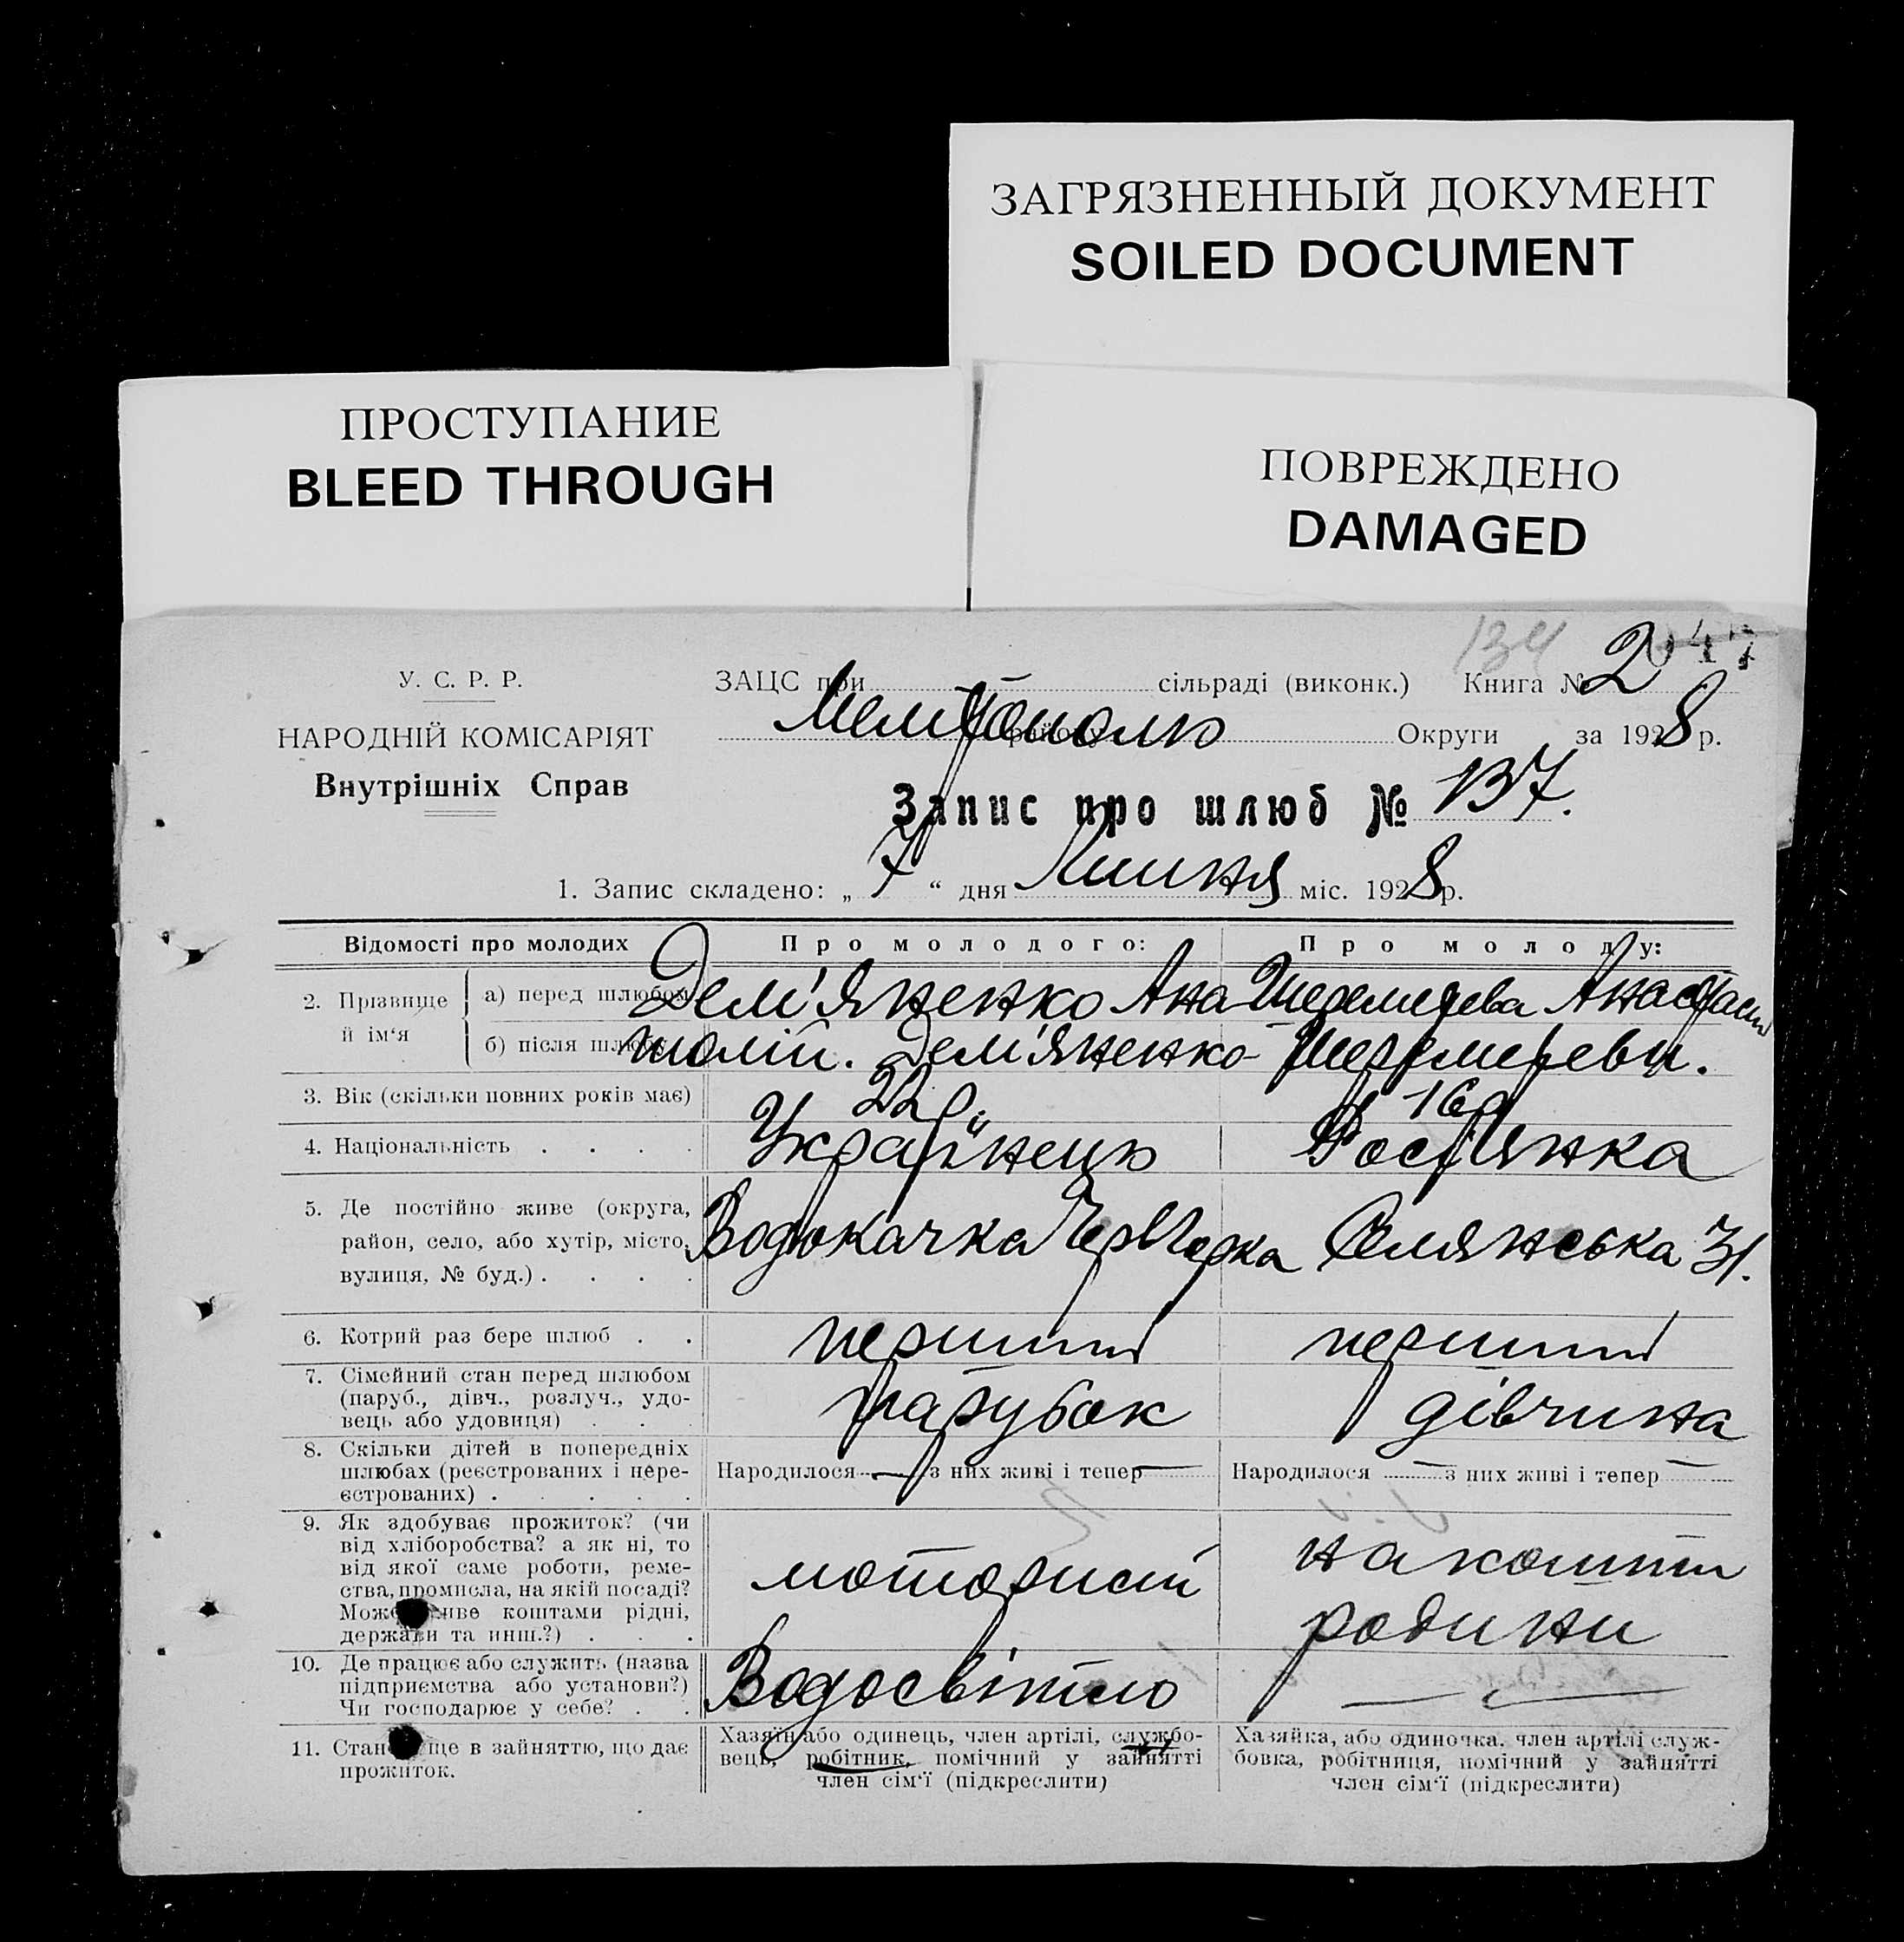 ЗАГРЯЗНЕННЫЙ ДОКУМЕНТ
SOILED DOCUMENT
ПРОСТУПАНИЕ
BLEED THROUGH
ПОВРЕЖДЕНО
DAMAGED
134
У. С. Р. Р.
НАРОДНІЙ КОМІСАРІЯТ
Внутрішніх Справ
ЗАЦС при сільраді (виконк.) Книга № 2
Мелітополь Округи за 1928 р.
Запис про шлюб № 137.
1. Запис складено: „ 7 “ дня Липня міс. 1928 р.
Відомості про молодих Про молодого: Про молоду:
2. Прізвище й ім‘я
а) перед шлюбом Дем'яненко Ана Шереметєва Анастасія
б) після шлюбу толій. Дем'яненко
3. Вік (скільки повних років має) 22 р. 16 р.
4. Національність . . . . Українець Росіянка
5. Де постійно живе (округа,
район, село, або хутір, місто,
вулиця, № буд.) . . . .
Водокачка Селянська 31.
6. Котрий раз бере шлюб . . перший перший
7. Сімейний стан перед шлюбом
(паруб., дівч., розлуч., удо-
вець або удовиця) . . .
парубок дівчина
8. Скільки дітей в попередніх
шлюбах (реєстрованих і пере-
єстрованих) . . . . .
Народилося — з них живі і тепер — Народилося — з них живі і тепер —
9. Як здобуває прожиток? (чи
від хліборобства? а як ні, то
від якої саме роботи, реме-
ства, промисла, на якій посаді?
Може живе коштами рідні,
держави та инш.?) . . .
моторист
на кошти
родини
10. Де працює або служить (назва
підприємства або установи?)
Чи господарює у себе? . .
Водосвітло —
11. Становище в зайняттю, що дає
прожиток.
Хазяїн або одинець, член артілі, службо-
вець, робітник, помічний у зайнятті
член сім‘ї (підкреслити)
Хазяйка, або одиночка, член артілі служ-
бовка, робітниця, помічний у зайнятті
член сім‘ї (підкреслити)